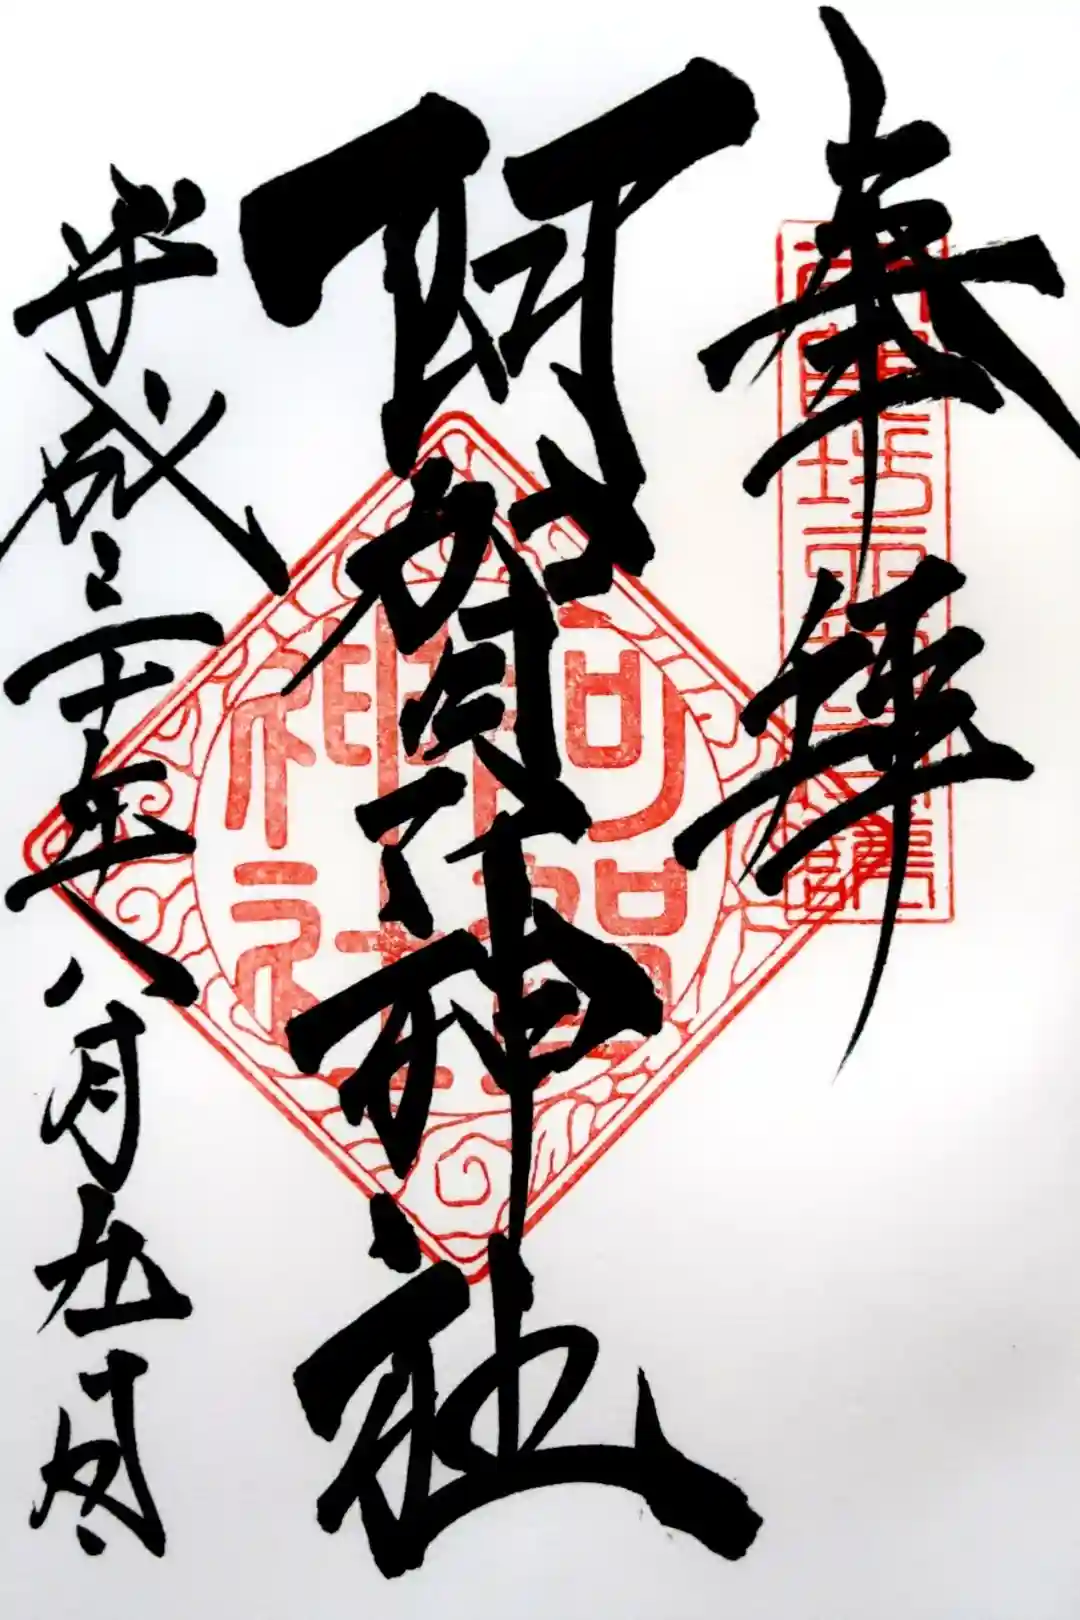 奉拝
阿賀神社
平成三十年八月九日
阿賀
神社